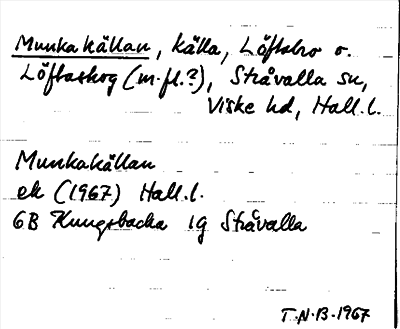 Munkakällan, källa, Löftabro o.
Löftaskog (m.fl.?), Stråvalla sn,
Viske hd, Hall.l.
Munkakällan
ek (1967) Hall.l.
6B Kungsbacka 1g Stråvalla
T.N.B. 1967